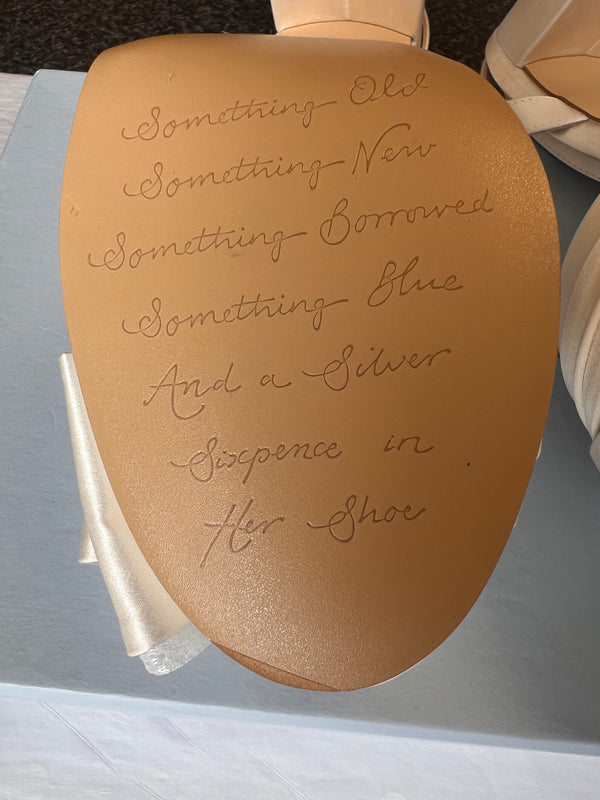 Something Old
Something New
Something Borrowed
Something Blue
And a Silver
Sixpence in
Her Shoe